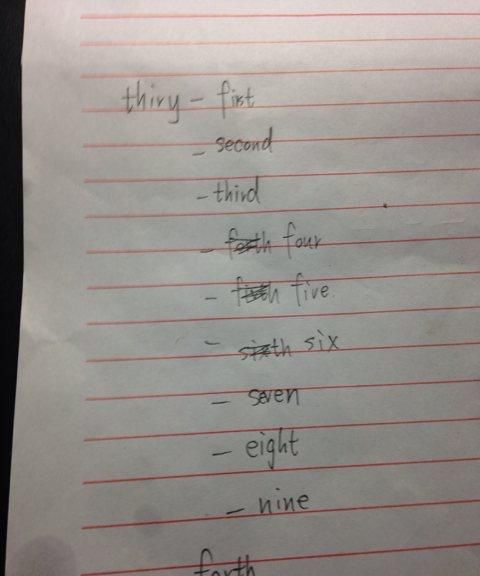 thiry - first
- second
- third
- forth four
- fifth five.
- sixth six
- seven
- eight
- nine
forth